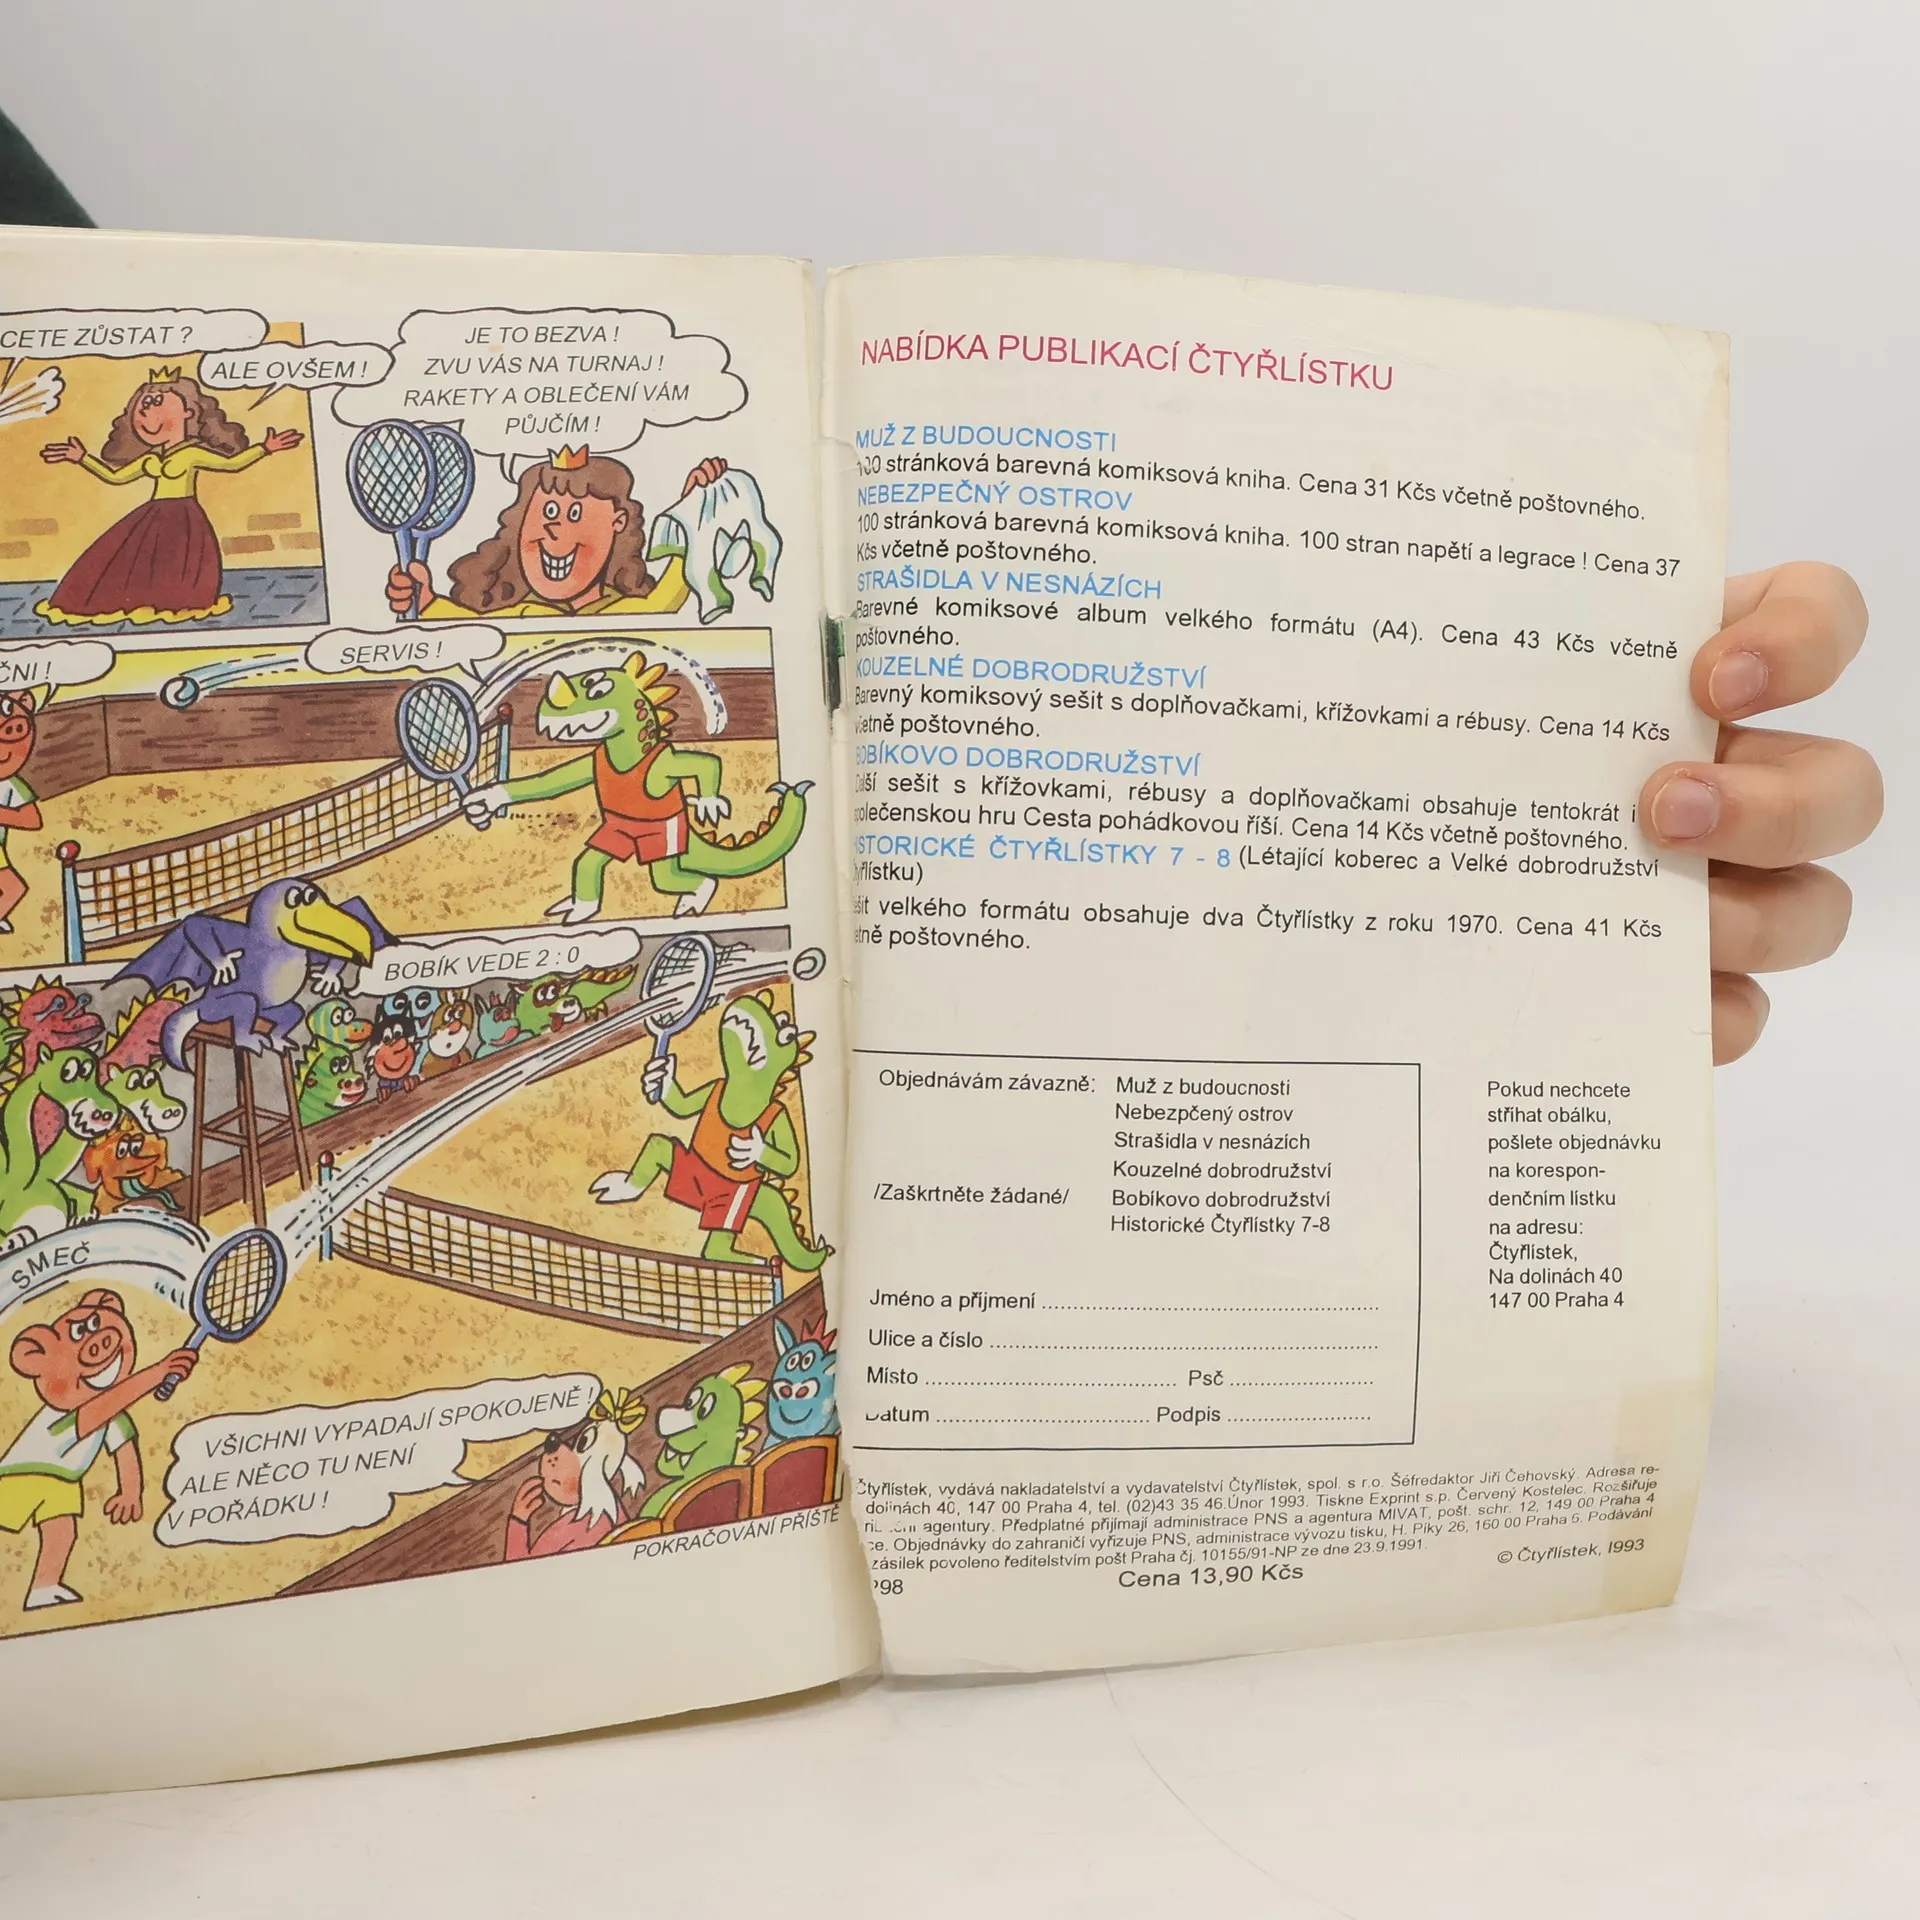 ZŮSTAT ?
ALE OVŠEM !
JE TO BEZVA !
ZVU VÁS NA TURNAJ !
RAKETY A OBLEČENÍ VÁM
PŮJČÍM !
SERVIS !
BOBÍK VEDE 2 : 0
SMEČ
VŠICHNI VYPADAJÍ SPOKOJENĚ !
ALE NĚCO TU NENÍ
V POŘÁDKU !
POKRAČOVÁNÍ PŘÍŠTĚ
NABÍDKA PUBLIKACÍ ČTYŘLÍSTKU
MUŽ Z BUDOUCNOSTI
100 stránková barevná komiksová kniha. Cena 31 Kčs včetně poštovného.
NEBEZPEČNÝ OSTROV
100 stránková barevná komiksová kniha. 100 stran napětí a legrace ! Cena 37
Kčs včetně poštovného.
STRAŠIDLA V NESNÁZÍCH
Barevné komiksové album velkého formátu (A4). Cena 43 Kčs včetně
poštovného.
KOUZELNÉ DOBRODRUŽSTVÍ
Barevný komiksový sešit s doplňovačkami, křížovkami a rébusy. Cena 14 Kčs
včetně poštovného.
BOBÍKOVO DOBRODRUŽSTVÍ
Další sešit s křížovkami, rébusy a doplňovačkami obsahuje tentokrát i
společenskou hru Cesta pohádkovou říší. Cena 14 Kčs včetně poštovného.
HISTORICKÉ ČTYŘLÍSTKY 7 - 8 (Létající koberec a Velké dobrodružství
Čtyřlístku)
velkého formátu obsahuje dva Čtyřlístky z roku 1970. Cena 41 Kčs
poštovného.
Objednávám závazně: Muž z budoucnosti
Nebezpčený ostrov
Strašidla v nesnázích
Kouzelné dobrodružství
/Zaškrtněte žádané/ Bobíkovo dobrodružství
Historické Čtyřlístky 7-8
Jméno a příjmení
Ulice a číslo
Místo Psč
Datum Podpis
Pokud nechcete
stříhat obálku,
pošlete objednávku
na korespon-
denčním lístku
na adresu:
Čtyřlístek,
Na dolinách 40
147 00 Praha 4
Čtyřlístek, vydává nakladatelství a vydavatelství Čtyřlístek, spol. s r.o. Šéfredaktor Jiří Čehovský. Adresa re-
dolinách 40, 147 00 Praha 4, tel. (02)43 35 46.Únor 1993. Tiskne Exprint s.p. Červený Kostelec. Rozšiřuje
agentury. Předplatné přijímají administrace PNS a agentura MIVAT, pošt. schr. 12, 149 00 Praha 4
Objednávky do zahraničí vyřizuje PNS, administrace vývozu tisku, H. Píky 26, 160 00 Praha 6. Podávání
zásilek povoleno ředitelstvím pošt Praha čj. 10155/91-NP ze dne 23.9.1991.
© Čtyřlístek, 1993
Cena 13,90 Kčs